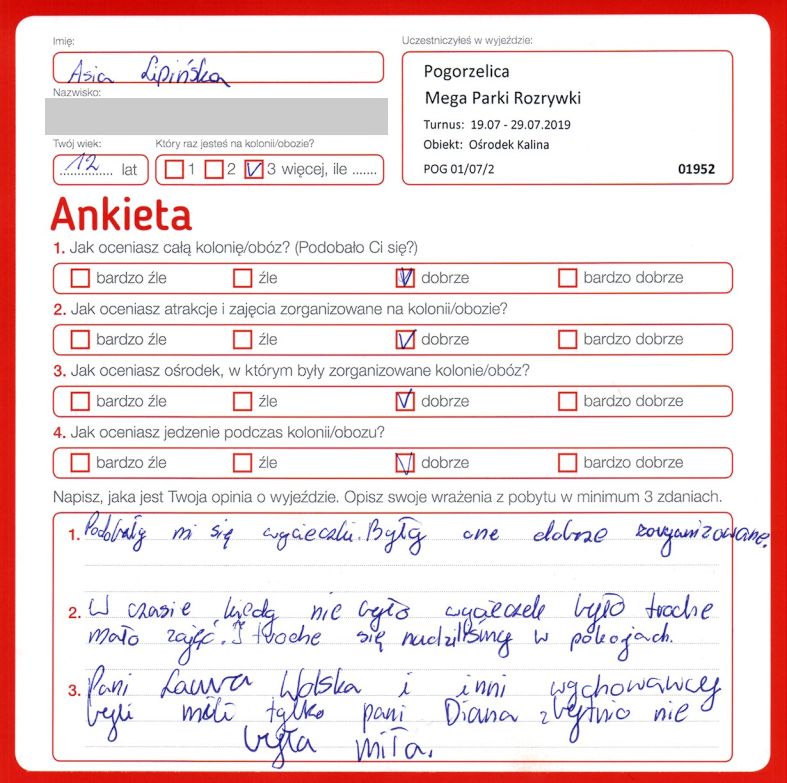 Imię:
Asia Lipińska
Nazwisko:
Twój wiek:
12 lat
Który raz jesteś na kolonii/obozie?
1 2 3 więcej, ile .......
Uczestniczyłeś w wyjeździe:
Pogorzelica
Mega Parki Rozrywki
Turnus: 19.07 - 29.07.2019
Obiekt: Ośrodek Kalina
POG 01/07/2 01952
Ankieta
1. Jak oceniasz całą kolonię/obóz? (Podobało Ci się?)
bardzo źle źle dobrze bardzo dobrze
2. Jak oceniasz atrakcje i zajęcia zorganizowane na kolonii/obozie?
bardzo źle źle dobrze bardzo dobrze
3. Jak oceniasz ośrodek, w którym były zorganizowane kolonie/obóz?
bardzo źle źle dobrze bardzo dobrze
4. Jak oceniasz jedzenie podczas kolonii/obozu?
bardzo źle źle dobrze bardzo dobrze
Napisz, jaka jest Twoja opinia o wyjeździe. Opisz swoje wrażenia z pobytu w minimum 3 zdaniach.
1. Podobały mi się wycieczki. Były one dobrze zorganizowane.
2. W czasie kiedy nie było wycieczek było troche
mało zajęć. I troche się nudziliśmy w pokojach.
3. Pani Laura Wolska i inni wychowawcy
byli mili tylko pani Diana zbytnio nie
była miła.